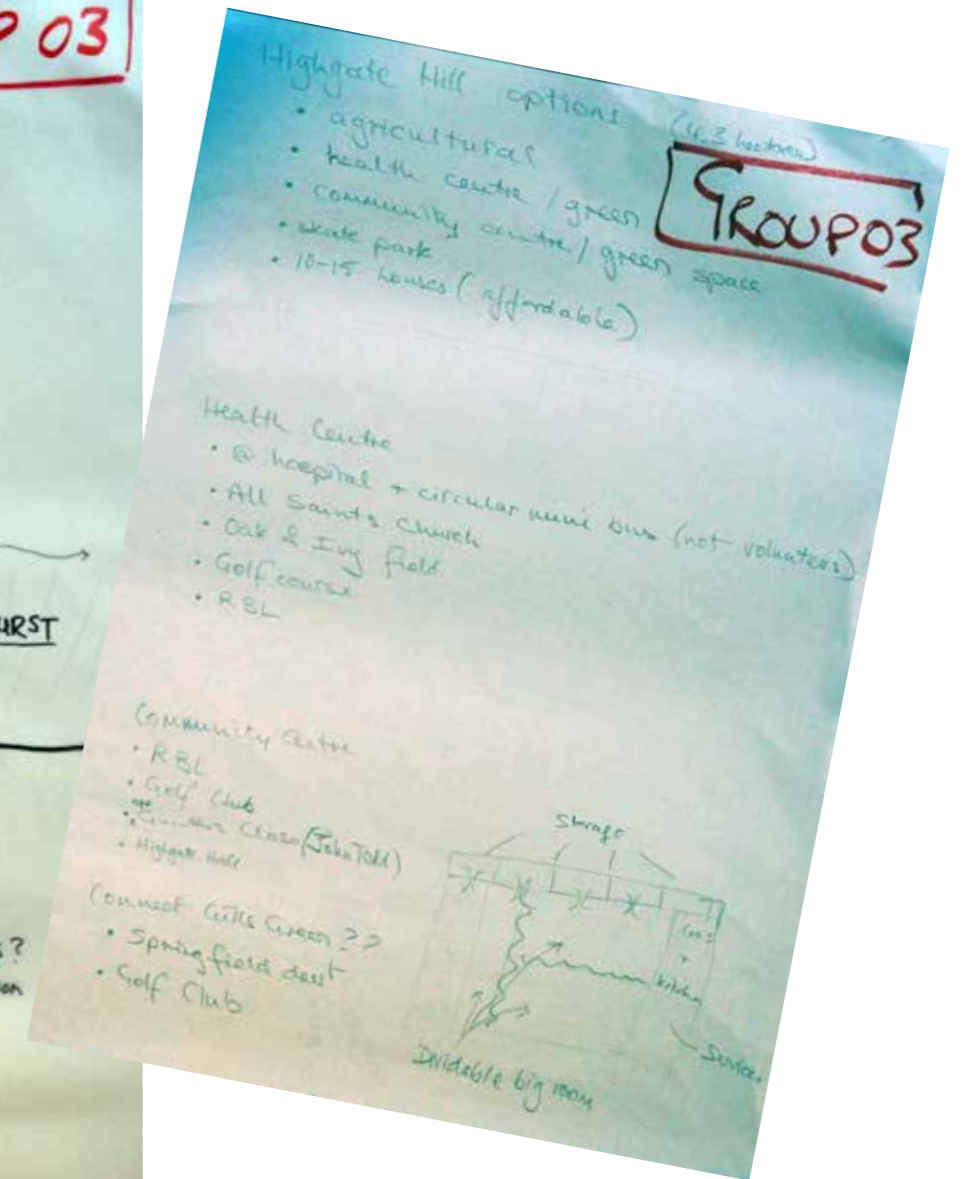 P 03
URST
s?
on
Highgate Hill options (4.3 hectares)
GROUP 03
• agricultural
• health centre / green
• community centre / green space
• skate park
• 10-15 houses (affordable)
Health Centre
• @ hospital + circular mini bus (not volunteers)
• All Saints Church
• Oak & Ivy field
• Golf course
• RBL
Community Centre
• RBL
• Golf Club
• Close (John Todd)
• Highgate
Connect Gills Green??
• Springfield
• Golf Club
Storage
+
kitchen
Services
Dividable big room